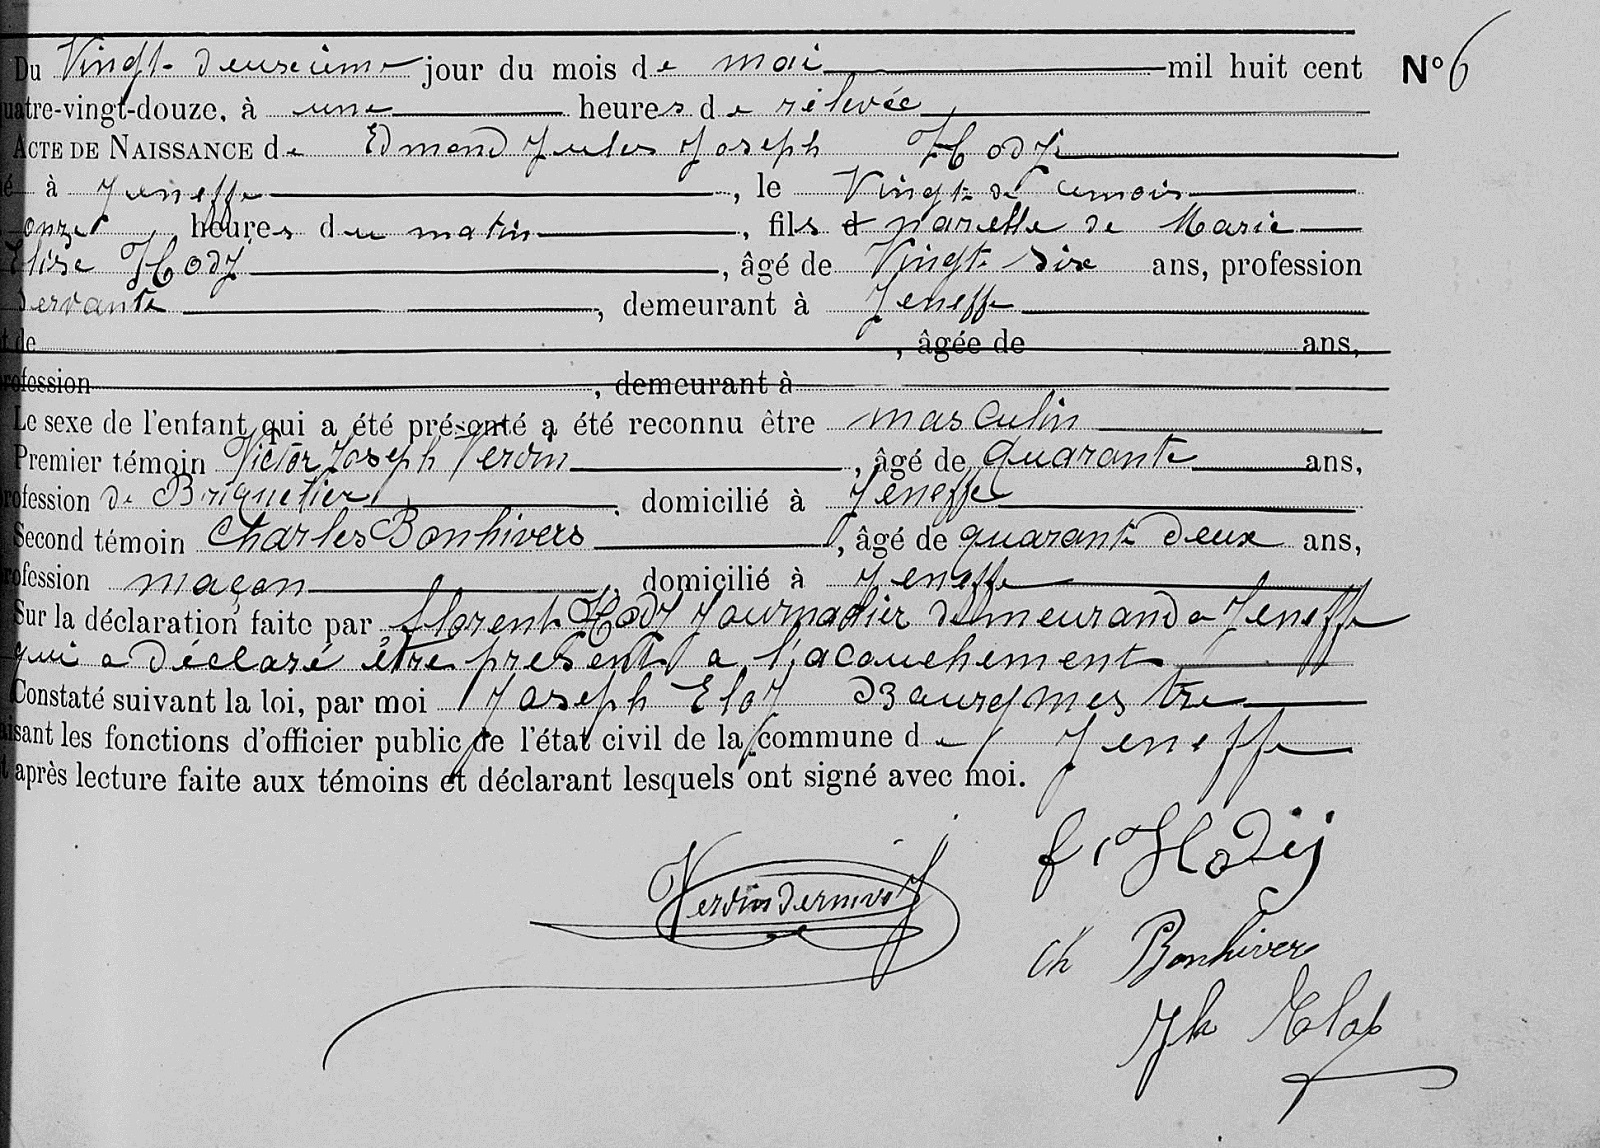 Du Vingt-deuxeieme jour du mois de mai mil huit cent N° 6
uatre-vingt-douze, à une heures de rélevée
ACTE DE NAISSANCE de Edmond Jules Joseph Hody
é à Jeneffe, le Vingt de cemois
onze heures du matin, fils d naturelle de Marie
Elise Hody, âgé de Vingt-six ans, profession
servante, demeurant à Jeneffe
t de , âgée de ans,
rofession , demeurant à
Le sexe de l'enfant qui a été présenté a été reconnu être masculin
Premier témoin Victor Joseph Verdin, âgé de Quarante ans,
rofession de Briquetier, domicilié à Jeneffe
Second témoin Charles Bonhivers, âgé de quarante deux ans,
rofession maçon, domicilié à Jeneffe
Sur la déclaration faite par florent Hody Journalier demeurand a Jeneffe
qui a déclaré être présent a l'acouchement
Constaté suivant la loi, par moi Joseph Eloy Bourgmestre
aisant les fonctions d'officier public de l'état civil de la commune de Jeneffe
t après lecture faite aux témoins et déclarant lesquels ont signé avec moi.
f. Hodÿ
Verdin
ch Bonhivers
Jh Eloy